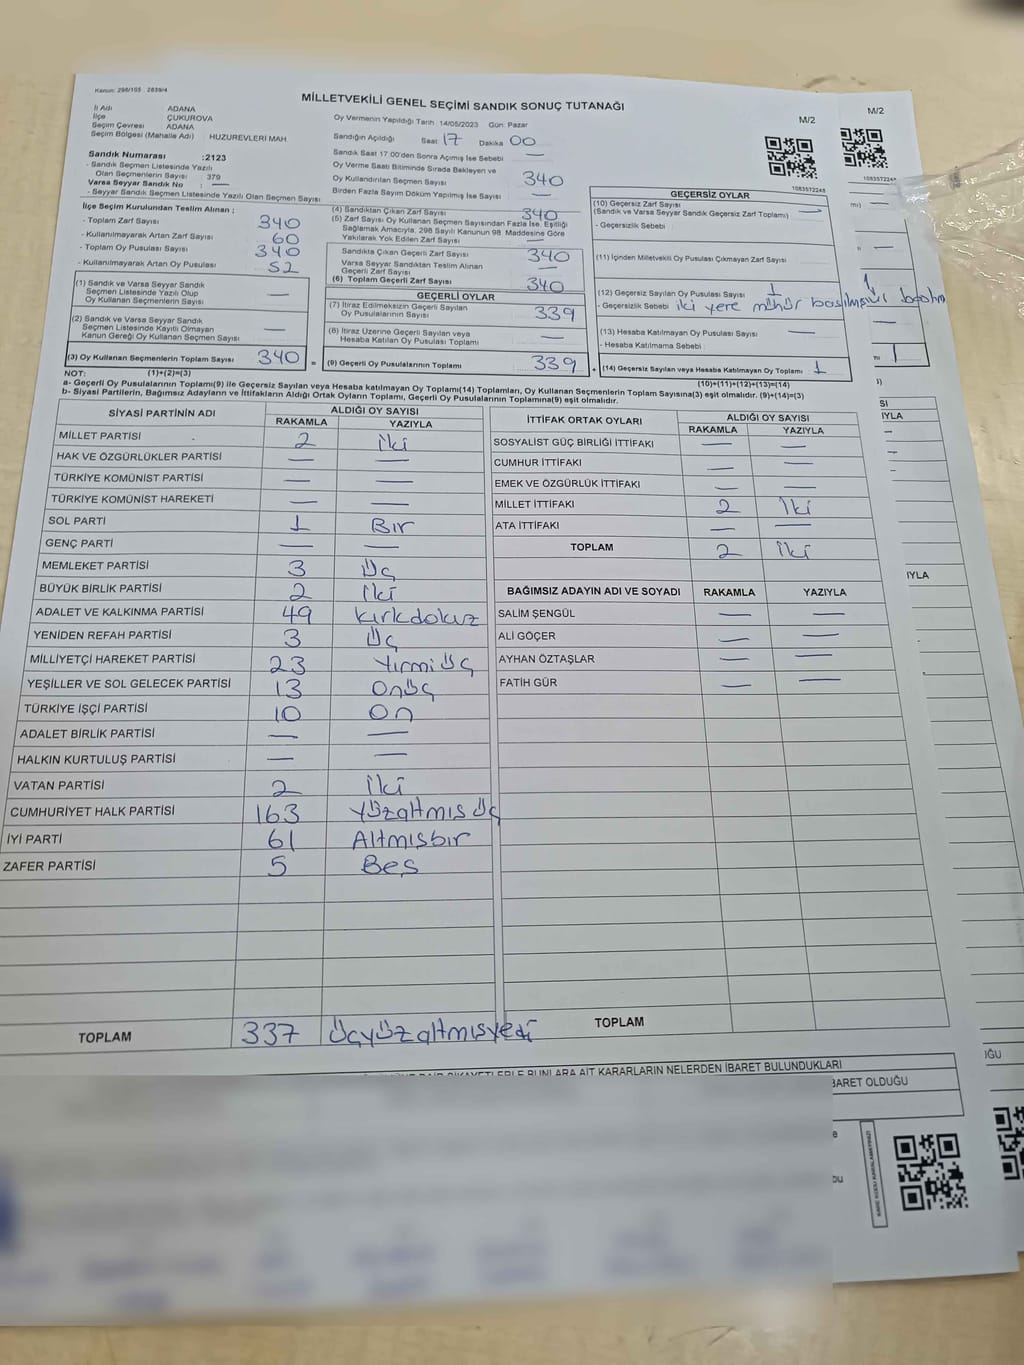 Kanun: 298/105 . 2839/4
MİLLETVEKİLİ GENEL SEÇİMİ SANDIK SONUÇ TUTANAĞI
M/2
M/2
İl Adı : ADANA
İlçe : ÇUKUROVA
Seçim Çevresi : ADANA
Seçim Bölgesi (Mahalle Adı) : HUZUREVLERİ MAH
Sandık Numarası :2123
- Sandık Seçmen Listesinde Yazılı
Olan Seçmenlerin Sayısı : 379
Varsa Seyyar Sandık No : —
- Seyyar Sandık Seçmen Listesinde Yazılı Olan Seçmen Sayısı
Oy Vermenin Yapıldığı Tarih :14/05/2023 Gün: Pazar
Sandığın Açıldığı Saat 17 Dakika 00
Sandık Saat 17:00'den Sonra Açmış İse Sebebi —
Oy Verme Saati Bitiminde Sırada Bekleyen ve
Oy Kullandırılan Seçmen Sayısı 340
Birden Fazla Sayım Döküm Yapılmış İse Sayısı —
1083572248
İlçe Seçim Kurulundan Teslim Alınan ;
- Toplam Zarf Sayısı 340
- Kullanılmayarak Artan Zarf Sayısı 60
- Toplam Oy Pusulası Sayısı 340
- Kullanılmayarak Artan Oy Pusulası 52
(1) Sandık ve Varsa Seyyar Sandık
Seçmen Listesinde Yazılı Olup
Oy Kullanan Seçmenlerin Sayısı —
(2) Sandık ve Varsa Seyyar Sandık
Seçmen Listesinde Kayıtlı Olmayan
Kanun Gereği Oy Kullanan Seçmen Sayısı —
(3) Oy Kullanan Seçmenlerin Toplam Sayısı 340 =
(4) Sandıktan Çıkan Zarf Sayısı 340
(5) Zarf Sayısı Oy Kullanan Seçmen Sayısından Fazla İse, Eşitliği
Sağlamak Amacıyla, 298 Sayılı Kanunun 98. Maddesine Göre
Yakılarak Yok Edilen Zarf Sayısı —
Sandıkta Çıkan Geçerli Zarf Sayısı 340
Varsa Seyyar Sandıktan Teslim Alınan
Geçerli Zarf Sayısı —
(6) Toplam Geçerli Zarf Sayısı 340
GEÇERLİ OYLAR
(7) İtiraz Edilmeksizin Geçerli Sayılan
Oy Pusulalarının Sayısı 339
(8) İtiraz Üzerine Geçerli Sayılan veya
Hesaba Katılan Oy Pusulası Toplamı —
(9) Geçerli Oy Pusulalarının Toplamı 339 +
GEÇERSİZ OYLAR
(10) Geçersiz Zarf Sayısı
(Sandık ve Varsa Seyyar Sandık Geçersiz Zarf Toplamı) —
- Geçersizlik Sebebi :
(11) İçinden Milletvekili Oy Pusulası Çıkmayan Zarf Sayısı —
(12) Geçersiz Sayılan Oy Pusulası Sayısı 1
- Geçersizlik Sebebi iki yere mühür
(13) Hesaba Katılmayan Oy Pusulası Sayısı —
- Hesaba Katılmama Sebebi :
(14) Geçersiz Sayılan veya Hesaba Katılmayan Oy Toplamı 1
NOT: (1)+(2)=(3) (10)+(11)+(12)+(13)=(14)
a- Geçerli Oy Pusulalarının Toplamı(9) ile Geçersiz Sayılan veya Hesaba katılmayan Oy Toplamı(14) Toplamları, Oy Kullanan Seçmenlerin Toplam Sayısına(3) eşit olmalıdır. (9)+(14)=(3)
b- Siyasi Partilerin, Bağımsız Adayların ve İttifakların Aldığı Ortak Oyların Toplamı, Geçerli Oy Pusulalarının Toplamına(9) eşit olmalıdır.
SİYASİ PARTİNİN ADI ALDIĞI OY SAYISI
RAKAMLA YAZIYLA
MİLLET PARTİSİ 2 iki
HAK VE ÖZGÜRLÜKLER PARTİSİ — —
TÜRKİYE KOMÜNİST PARTİSİ — —
TÜRKİYE KOMÜNİST HAREKETİ — —
SOL PARTİ 1 Bir
GENÇ PARTİ — —
MEMLEKET PARTİSİ 3 Üç
BÜYÜK BİRLİK PARTİSİ 2 iki
ADALET VE KALKINMA PARTİSİ 49 kırkdokuz
YENİDEN REFAH PARTİSİ 3 Üç
MİLLİYETÇİ HAREKET PARTİSİ 23 Yirmi Üç
YEŞİLLER VE SOL GELECEK PARTİSİ 13 Onüç
TÜRKİYE İŞÇİ PARTİSİ 10 On
ADALET BİRLİK PARTİSİ — —
HALKIN KURTULUŞ PARTİSİ — —
VATAN PARTİSİ 2 İki
CUMHURİYET HALK PARTİSİ 163 Yüzaltmıs üç
İYİ PARTİ 61 Altmısbir
ZAFER PARTİSİ 5 Bes
TOPLAM 337 Üçyüzaltmısyedi
İTTİFAK ORTAK OYLARI ALDIĞI OY SAYISI
RAKAMLA YAZIYLA
SOSYALİST GÜÇ BİRLİĞİ İTTİFAKI — —
CUMHUR İTTİFAKI — —
EMEK VE ÖZGÜRLÜK İTTİFAKI — —
MİLLET İTTİFAKI 2 İki
ATA İTTİFAKI — —
TOPLAM 2 İki
BAĞIMSIZ ADAYIN ADI VE SOYADI RAKAMLA YAZIYLA
SALİM ŞENGÜL — —
ALİ GÖÇER — —
AYHAN ÖZTAŞLAR — —
FATİH GÜR — —
TOPLAM
BUNLARA AİT KARARLARIN NELERDEN İBARET BULUNDUKLARI
İBARET OLDUĞU
IYLA
IYLA